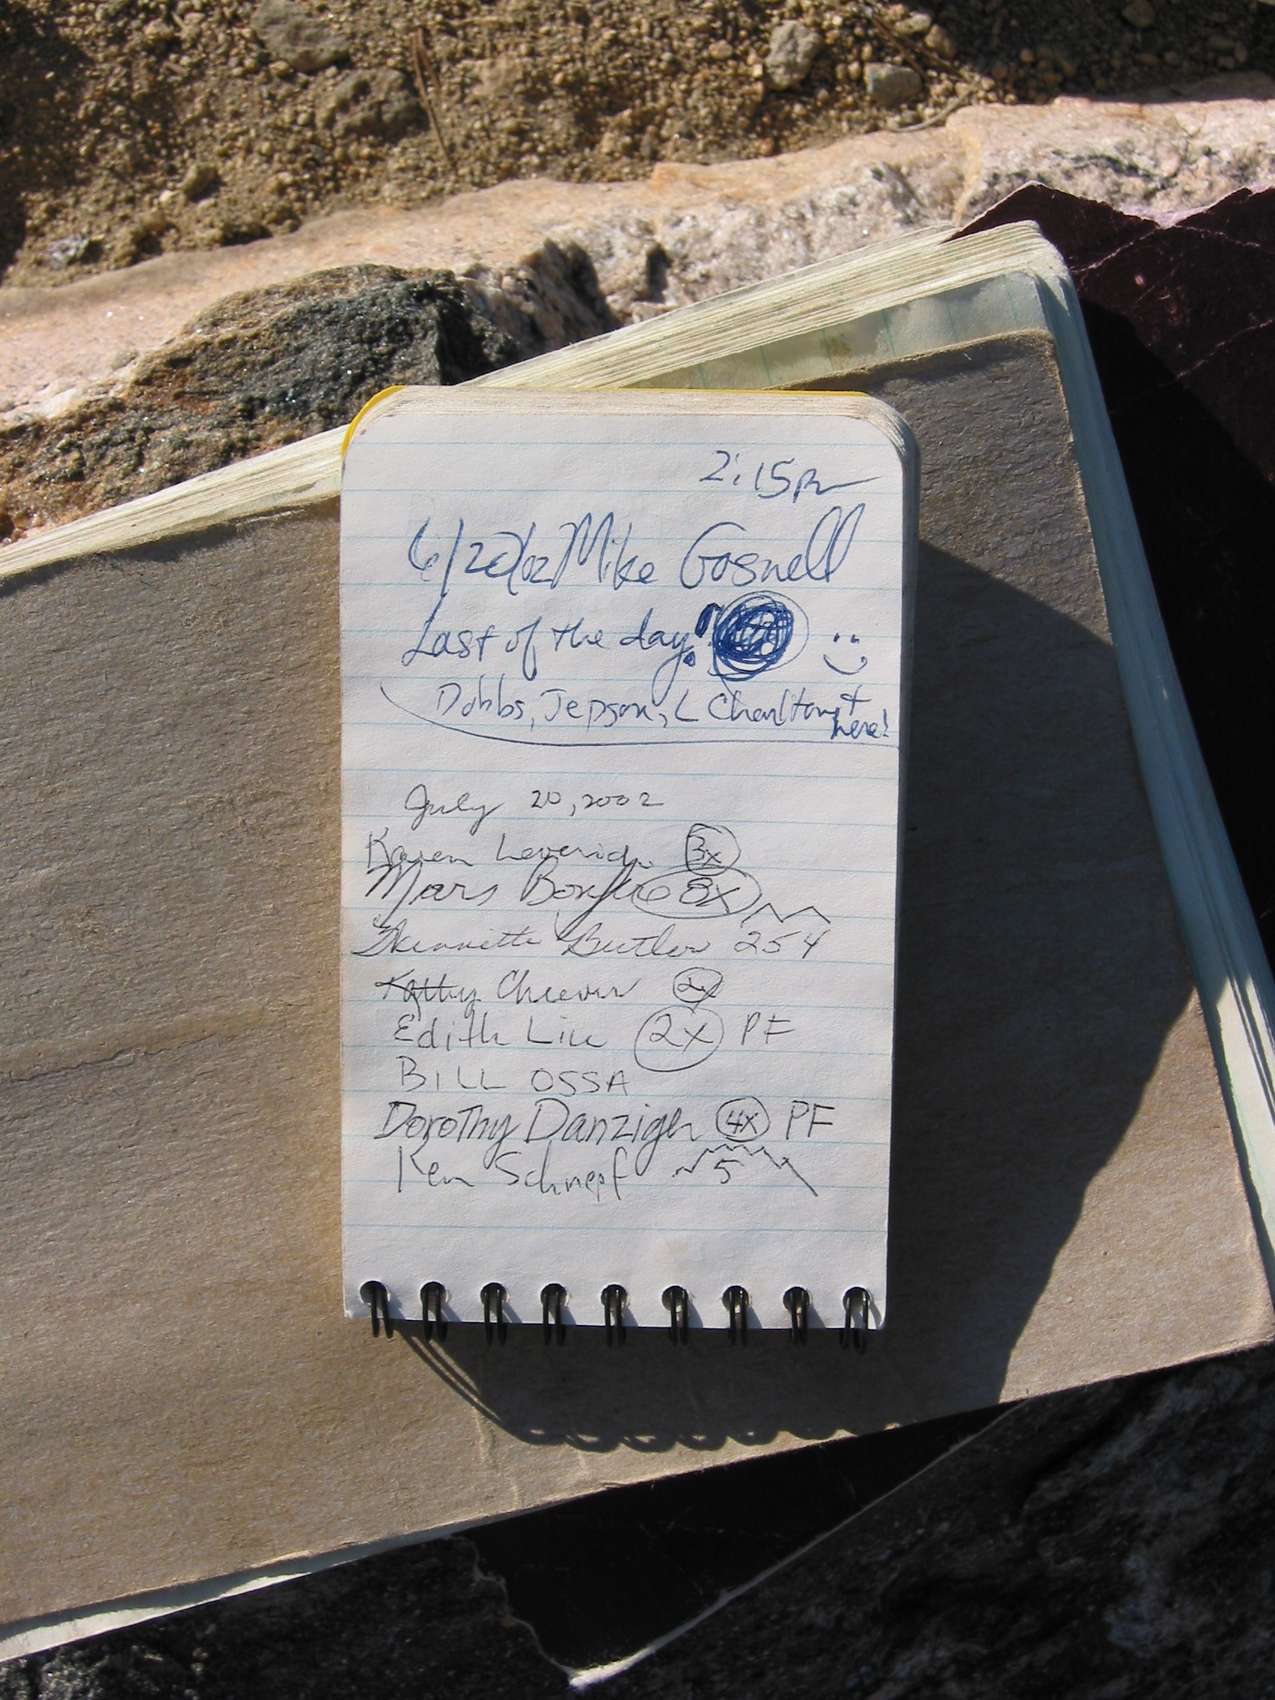 2:15pm
6/20/02 Mike Gosnell
Last of the day!
Dobbs, Jepson, L Charlton +
here!
July 20, 2002
Karen Leverich 3x
Mars Bonfire 8x
Butler 254
Kathy Cheever 2x
Edith Liu 2x PF
BILL OSSA
Dorothy Danziger 4x PF
Ken Schnepf 5